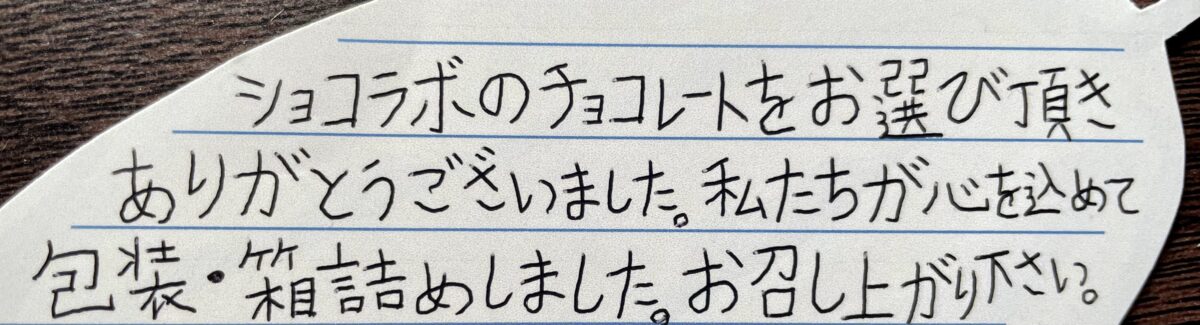 ショコラボのチョコレートをお選び頂き
ありがとうございました。私たちが心を込めて
包装・箱詰めしました。お召し上がり下さい。